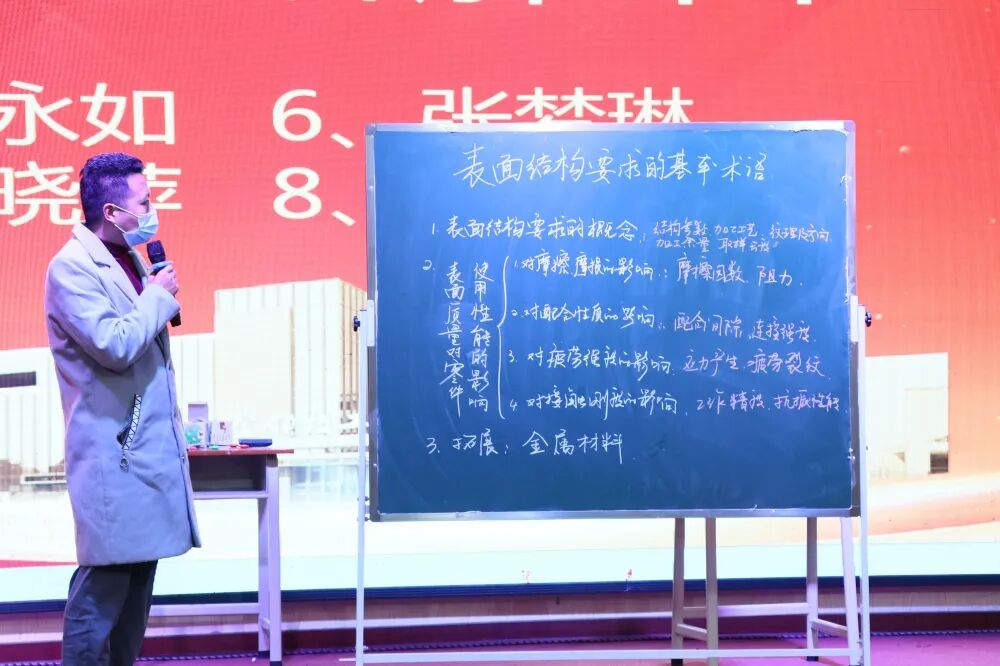 永如 6、张梦琳
晓萍 8、
表面结构要求的基本术语
1. 表面结构要求的概念: 结构参数 加工工艺、纹理及方向
加工余量 取样长度
2. 表面质量对零件
使用性能的影响
1. 对摩擦磨损的影响: 摩擦因数、阻力
2. 对配合性质的影响: 配合间隙, 连接强度
3. 对疲劳强度的影响: 应力产生、疲劳裂纹
4. 对接触刚度的影响、工作精度、抗振性能
3. 拓展: 金属材料